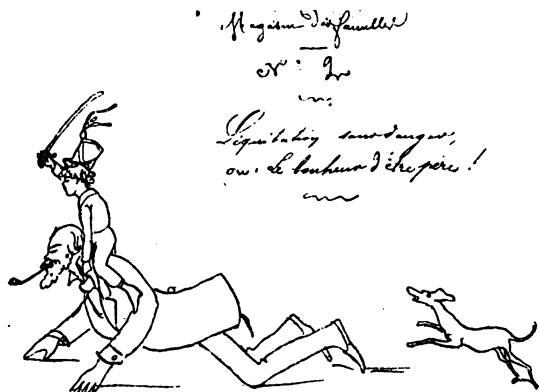 Magasin des familles
N° 2
L'équitation sans danger,
ou: Le bonheur d'être père!